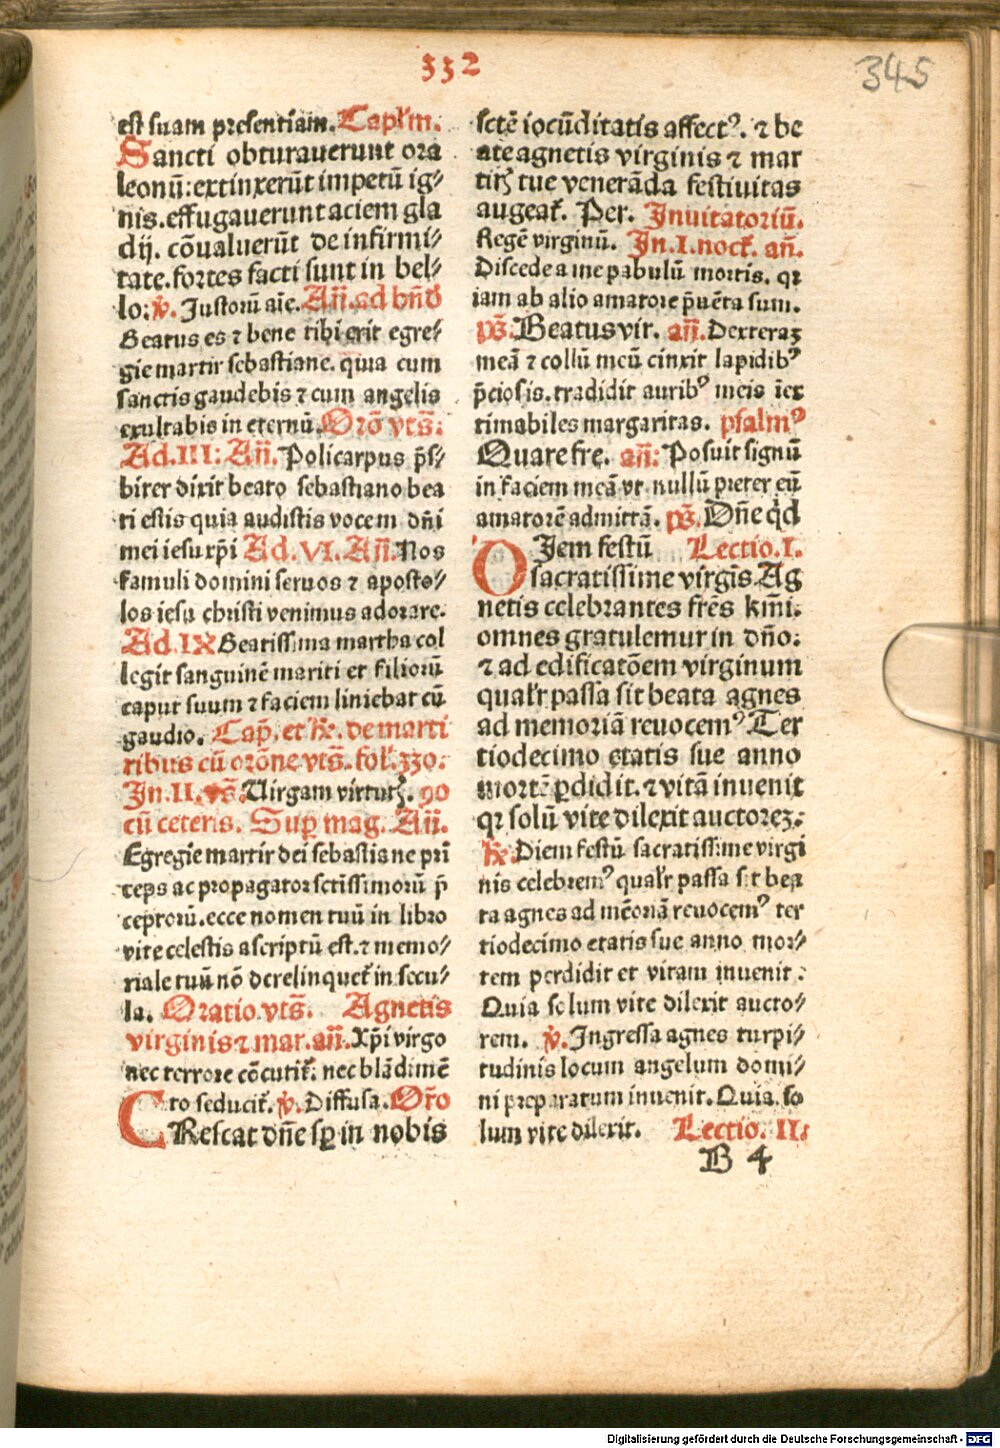 332
345
est suam presentiam. Capl'm.
Sancti obturauerunt ora
leonū: extinxerūt impetū ig⸗
nis. effugauerunt aciem gla
dij. cōualuerūt de infirmi⸗
tate. fortes facti sunt in bel⸗
lo: v̄. Justorū aīe. Añ. ad bn̄d
Beatus es ⁊ bene tibi erit egre⸗
gie martir sebastiane. quia cum
sanctis gaudebis ⁊ cum angelis
exultabis in eternū. Orō vts̄.
Ad. III: Añ. Policarpus p̄s⸗
biter dixit beato sebastiano bea
ti estis quia audistis vocem dn̄i
mei iesu xp̄i Ad. VI. Añ. Nos
famuli domini seruos ⁊ aposto⸗
los iesu christi venimus adorare.
Ad IX Beatissima martha col
legit sanguinē mariti et filiorū
caput suum ⁊ faciem liniebat cū
gaudio. Cap̄. et R̄. de marti
ribus cū orōne vts̄. fol'. 330.
In. II. vs̄. Uirgam virtutꝝ. 90
cū ceteris. Suꝑ mag. Añ.
Egregie martir dei sebastiane prī
ceps ac propagator sctīssimorū p̄
ceptorū. ecce nomen tuū in libro
vite celestis ascriptū est. ⁊ memo⸗
riale tuū nō derelinquet̄ in secu⸗
la. Oratio vts̄. Agnetis
virginis ⁊ mar. añ. Xp̄i virgo
nec terrore cōcutit̄: nec blādimē
to seducit̄. v̄. Diffusa. Or̄o
CRescat dn̄e sꝑ in nobis
sctē iocūditatis affectꝰ. ⁊ be
ate agnetis virginis ⁊ mar
tirꝭ tue venerāda festiuitas
augeat̄. Per. Inuitatoriū.
Regē virginū. In. I. noct̄. añ.
Discede a me pabulū mortis. qꝛ
iam ab alio amatore p̄uēta sum.
ps̄. Beatus vir. añ. Dexteraꝫ
meā ⁊ collū meū cinxit lapidibꝰ
p̄ciosis. tradidit auribꝰ meis īex
timabiles margaritas. psalmꝰ
Quare fre. añ: Posuit signū
in faciem meā vt nullū preter eū
amatorē admittā. ps̄. Dn̄e q̇d
DIem festū Lectio. I.
sacratissime virgīs Ag
netis celebrantes frēs kmī.
omnes gratulemur in dn̄o:
⁊ ad edificatōem virginum
qual'r passa sit beata agnes
ad memoriā reuocemꝰ Ter
tiodecimo etatis sue anno
mortē ꝑdidit. ⁊ vitā inuenit
qꝛ solū vite dilexit auctoreꝫ.
R̄. Diem festū sacratissime virgi
nis celebremꝰ qual'r passa sit bea
ta agnes ad mēoriā reuocemꝰ ter
tiodecimo etatis sue anno mor⸗
tem perdidit et vitam inuenit:
Quia solum vite dilexit aucto⸗
rem. v̄. Ingressa agnes turpi⸗
tudinis locum angelum domi⸗
ni preparatum inuenit. Quia. so
lum vite dilexit. Lectio. II.
B 4
Digitalisierung gefördert durch die Deutsche Forschungsgemeinschaft - DFG